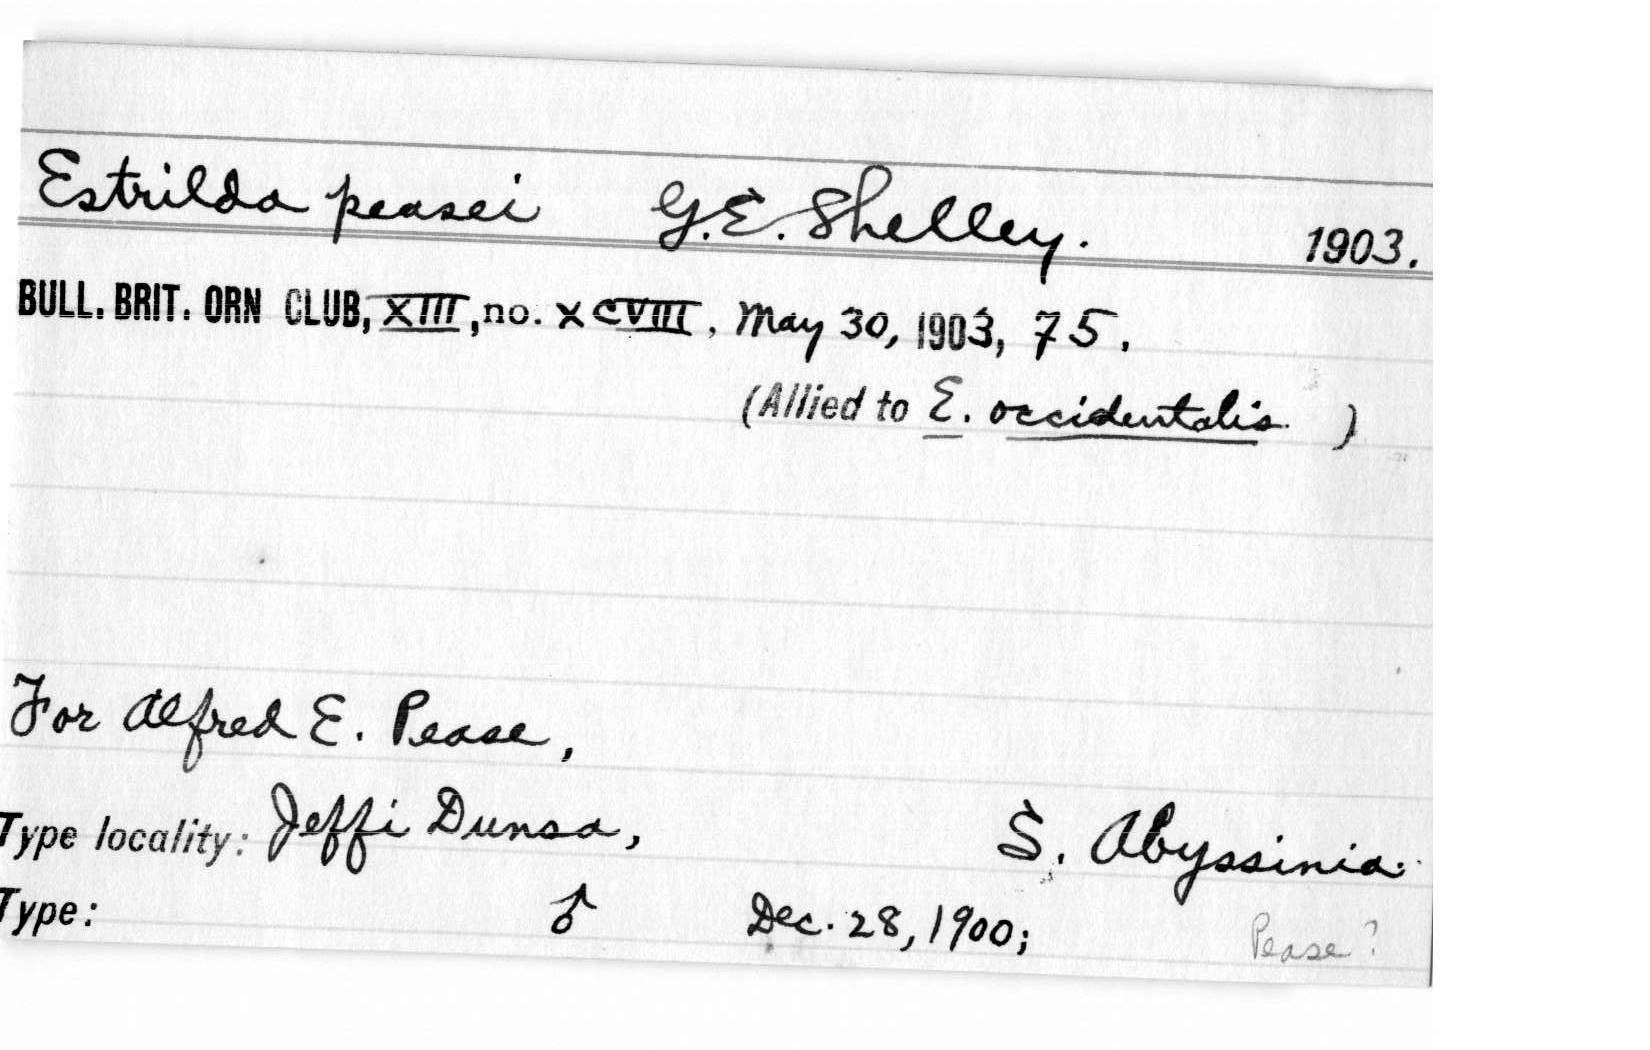 Estrilda peasei G.E. Shelley. 1903.
BULL. BRIT. ORN CLUB, XIII, no. XCVIII, May 30, 1903, 75.
(Allied to E. occidentalis. )
For Alfred E. Pease,
Type locality: Jeffi Dunsa, S. Abyssinia.
Type: ♂ Dec. 28, 1900; Pease?